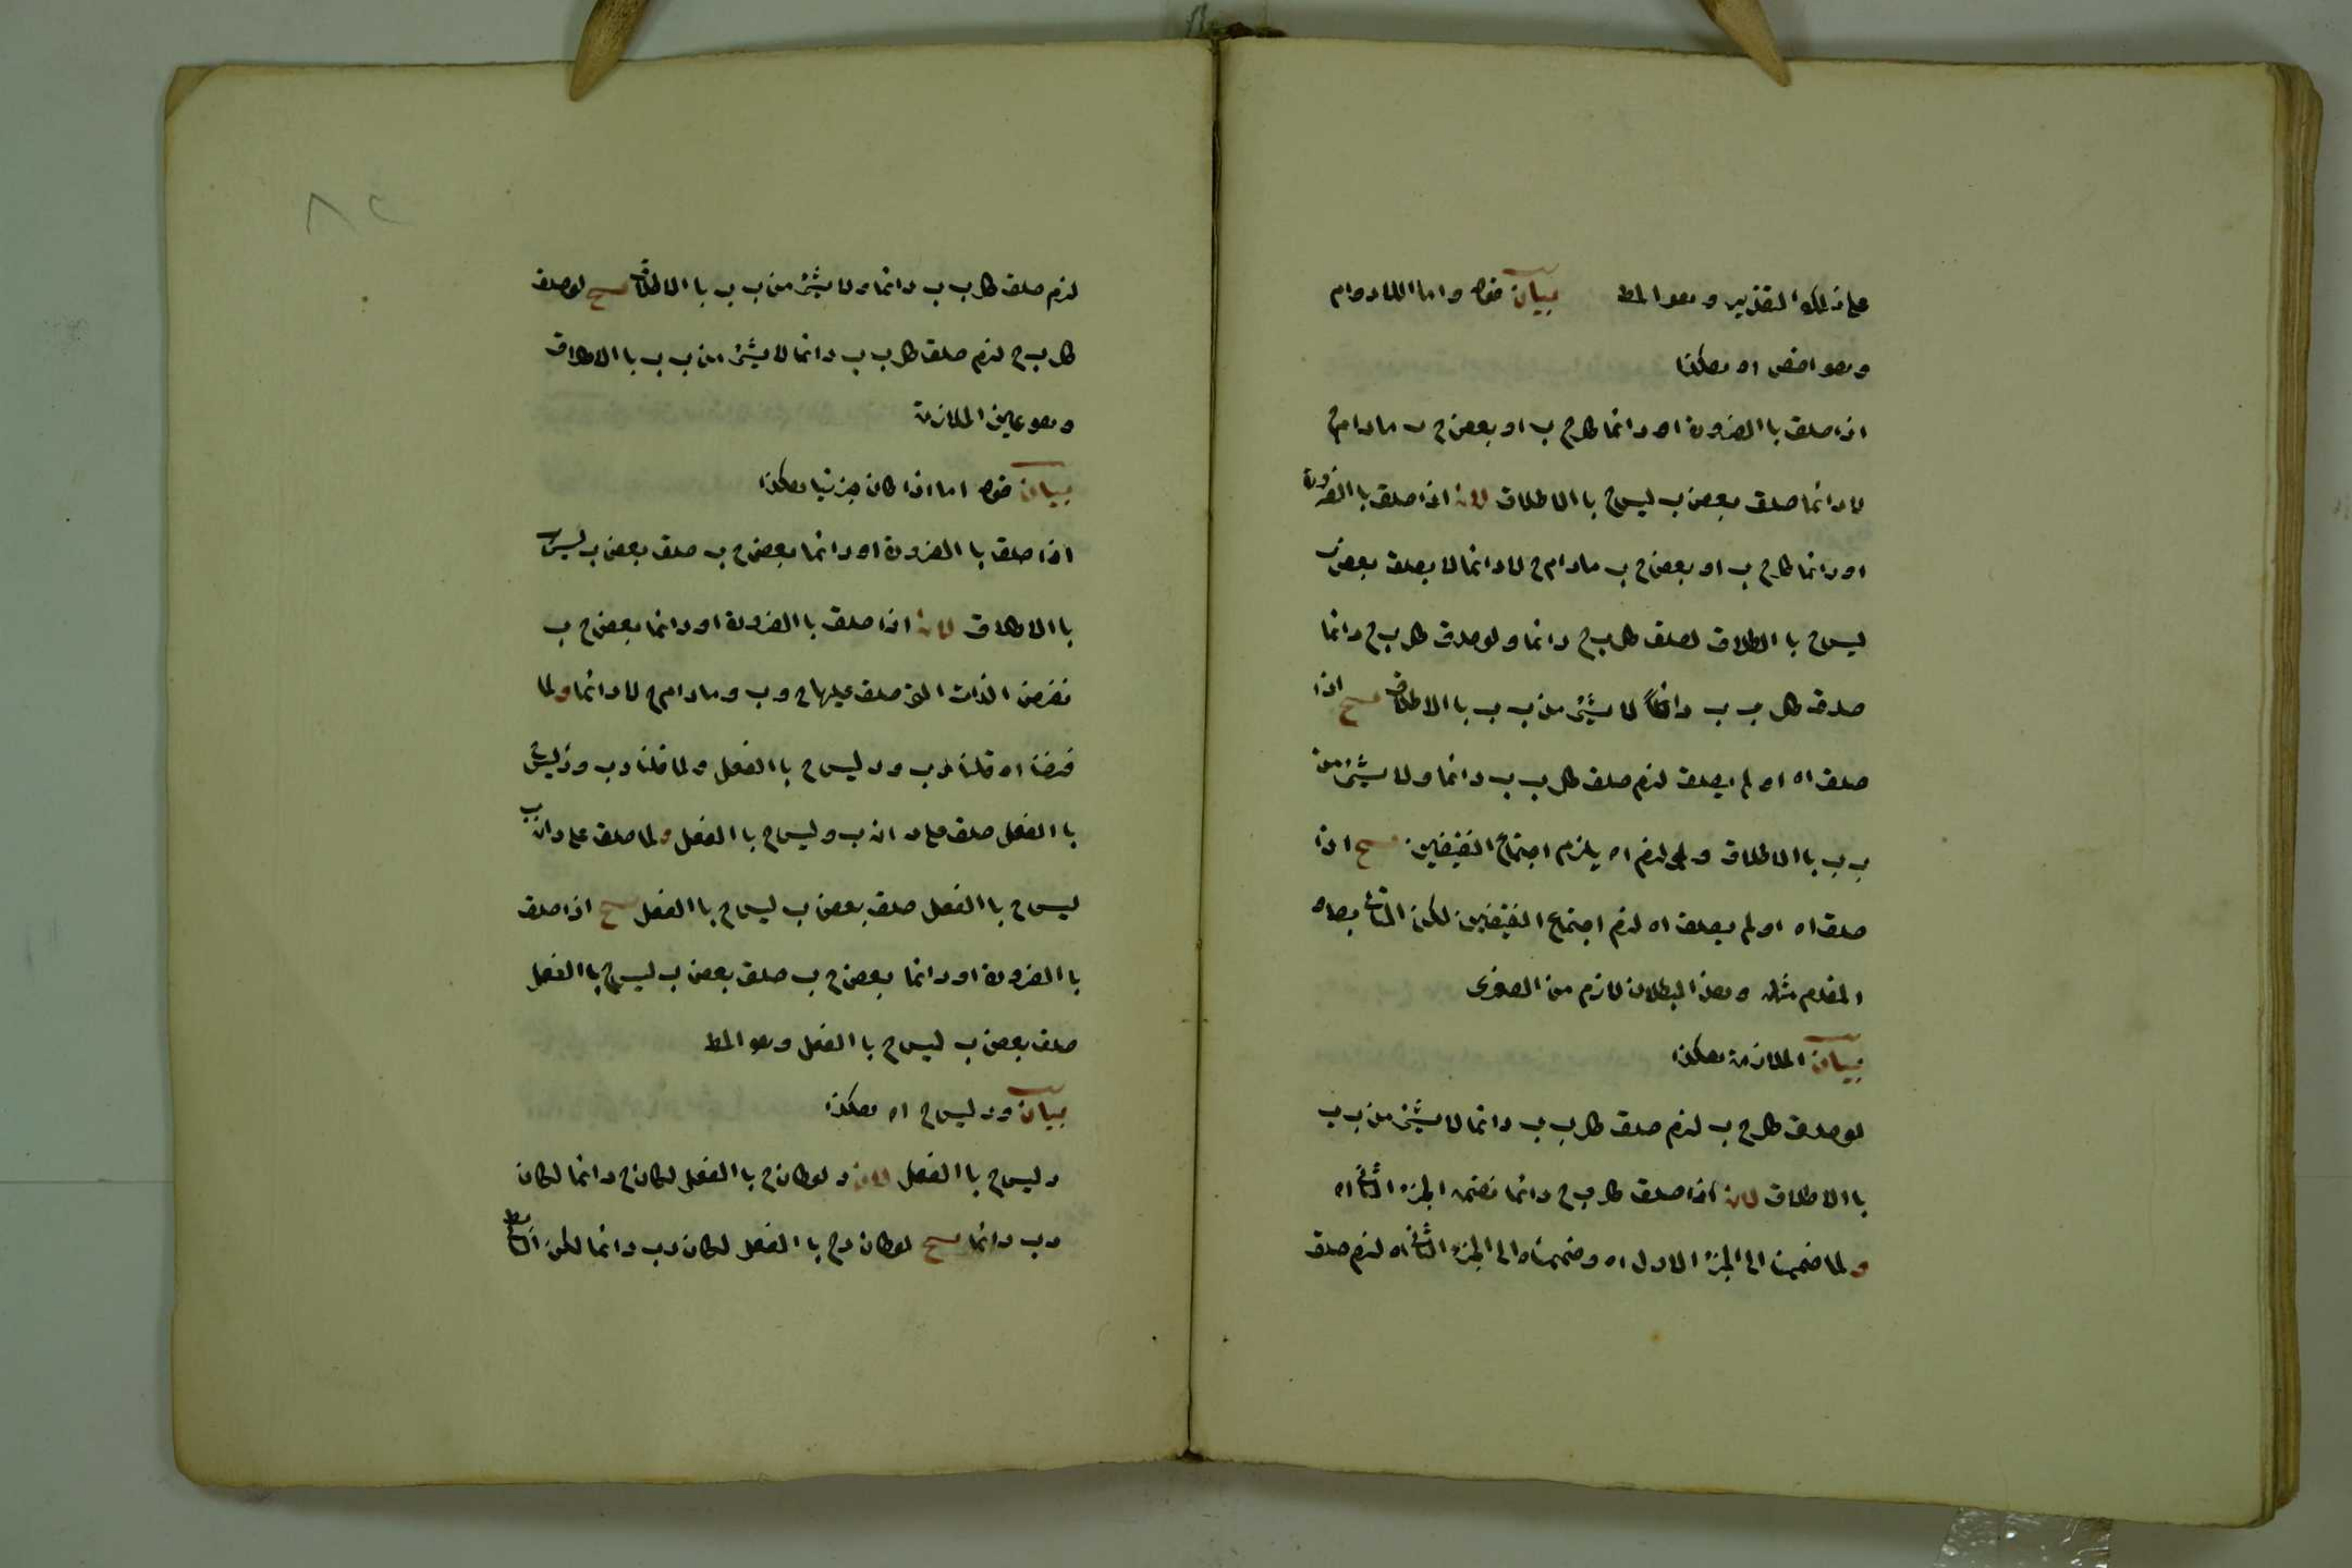 على ذلك التقدير وهو المط بيان قوله واما اللادوام
وهو اخص اه هكذا
اذا صدق باالضرورة او دائما كل ج ب او بعض ج ب مادام ج
لا دائما صدق بعض ب ليس ج باالاطلاق لانه اذا صدق باالضرورة
او دائما كل ج ب او بعض ج ب مادام ج لا دائما لا يصدق بعض ب
ليس ج باالاطلاق لصدق كل ب ج دائما ولو صدق كل ب ج دائما
صدق كل ب ب دائما لا شيئ من ب ب باالاطلاق ينتج اذا
صدق اه او لم يصدق لزم صدق كل ب ب دائما ولا شيئ من
ب ب باالاطلاق ولو لزم اه يلزم اجتماع النقيضين ينتج اذا
صدق اه او لم يصدق اه لزم اجتماع النقيضين لكن التالى بط اه
المقدم مثله وهذا البطلان لازم من الصغرى
بيان الملازمة هكذا
لو صدق كل ج ب لزم صدق كل ب ب دائما لا شيئ من ب ب
باالاطلاق لانه اذا صدق كل ب ج دائما نضمه الجزء الثانى اه
ولما ضممنا الى الجزء الاول اه وضممناه الى الجزء الثانى اه لزم صدق
لزم صدق كل ب ب دائما ولا شيئ من ب ب باالاطلاق ينتج لو صدق
كل ب ج لزم صدق كل ب ب دائما لا شيئ من ب ب باالاطلاق
وهو عين الملازمة
بيان قوله اما اذا كان جزئيا هكذا
اذا صدق باالضرورة او دائما بعض ج ب صدق بعض ب ليس ج
باالاطلاق لانه اذا صدق باالضرورة او دائما بعض ج ب
نفرض الذات التى صدق عليها ج وب ومادام ج لا دائما ولما
فرضنا اه قلنا د ب ود ليس ج باالفعل ولما قلنا د ب ود ليس ج
باالفعل صدق على د انه ب وليس ج باالفعل ولما صدق على د انه ب
ليس ج باالفعل صدق بعض ب ليس ج باالفعل ينتج اذا صدق
باالضرورة او دائما بعض ج ب صدق بعض ب ليس ج باالفعل
صدق بعض ب ليس ج باالفعل وهو المط
بيان ود ليس ج اه هكذا
د ليس ج باالفعل لان د لو كان ج باالفعل لكان ج دائما لكان
د ب دائما ينتج لو كان د ج باالفعل لكان د ب دائما لكن التالى بط
٨٢